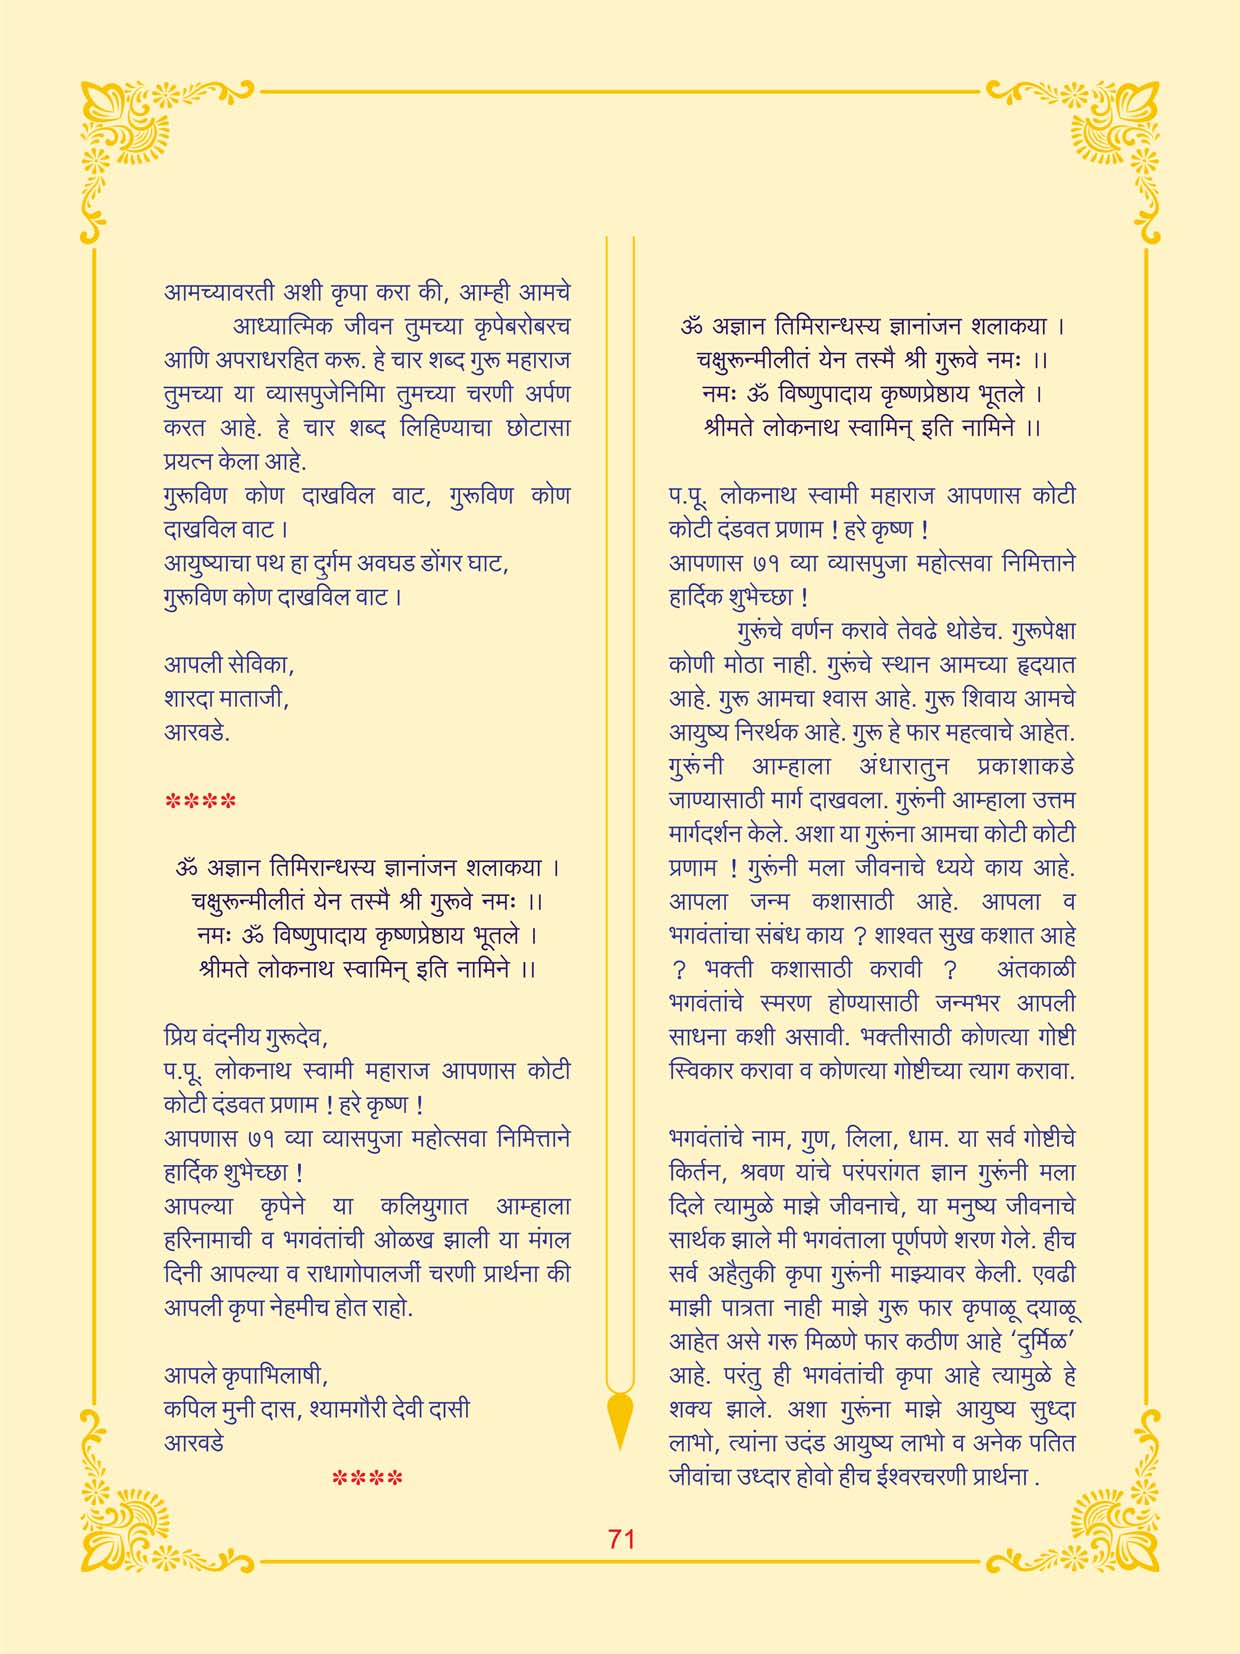 आमच्यावरती अशी कृपा करा की, आम्ही आमचे
आध्यात्मिक जीवन तुमच्या कृपेबरोबरच
आणि अपराधरहित करू. हे चार शब्द गुरू महाराज
तुमच्या या व्यासपुजेनिमिा तुमच्या चरणी अर्पण
करत आहे. हे चार शब्द लिहिण्याचा छोटासा
प्रयत्न केला आहे.
गुरूविण कोण दाखविल वाट, गुरूविण कोण
दाखविल वाट ।
आयुष्याचा पथ हा दुर्गम अवघड डोंगर घाट,
गुरूविण कोण दाखविल वाट ।
आपली सेविका,
शारदा माताजी,
आरवडे.
****
ॐ अज्ञान तिमिरान्धस्य ज्ञानांजन शलाकया ।
चक्षुरून्मीलीतं येन तस्मै श्री गुरूवे नमः ।।
नमः ॐ विष्णुपादाय कृष्णप्रेष्ठाय भूतले ।
श्रीमते लोकनाथ स्वामिन् इति नामिने ।।
प्रिय वंदनीय गुरूदेव,
प.पू. लोकनाथ स्वामी महाराज आपणास कोटी
कोटी दंडवत प्रणाम ! हरे कृष्ण !
आपणास ७१ व्या व्यासपुजा महोत्सवा निमित्ताने
हार्दिक शुभेच्छा !
आपल्या कृपेने या कलियुगात आम्हाला
हरिनामाची व भगवंतांची ओळख झाली या मंगल
दिनी आपल्या व राधागोपालजीं चरणी प्रार्थना की
आपली कृपा नेहमीच होत राहो.
आपले कृपाभिलाषी,
कपिल मुनी दास, श्यामगौरी देवी दासी
आरवडे
****
ॐ अज्ञान तिमिरान्धस्य ज्ञानांजन शलाकया ।
चक्षुरून्मीलीतं येन तस्मै श्री गुरूवे नमः ।।
नमः ॐ विष्णुपादाय कृष्णप्रेष्ठाय भूतले ।
श्रीमते लोकनाथ स्वामिन् इति नामिने ।।
प.पू. लोकनाथ स्वामी महाराज आपणास कोटी
कोटी दंडवत प्रणाम ! हरे कृष्ण !
आपणास ७१ व्या व्यासपुजा महोत्सवा निमित्ताने
हार्दिक शुभेच्छा !
गुरूंचे वर्णन करावे तेवढे थोडेच. गुरूपेक्षा
कोणी मोठा नाही. गुरूंचे स्थान आमच्या हृदयात
आहे. गुरू आमचा श्वास आहे. गुरू शिवाय आमचे
आयुष्य निरर्थक आहे. गुरू हे फार महत्वाचे आहेत.
गुरूंनी आम्हाला अंधारातुन प्रकाशाकडे
जाण्यासाठी मार्ग दाखवला. गुरूंनी आम्हाला उत्तम
मार्गदर्शन केले. अशा या गुरूंना आमचा कोटी कोटी
प्रणाम ! गुरूंनी मला जीवनाचे ध्यये काय आहे.
आपला जन्म कशासाठी आहे. आपला व
भगवंतांचा संबंध काय ? शाश्वत सुख कशात आहे
? भक्ती कशासाठी करावी ? अंतकाळी
भगवंतांचे स्मरण होण्यासाठी जन्मभर आपली
साधना कशी असावी. भक्तीसाठी कोणत्या गोष्टी
स्विकार करावा व कोणत्या गोष्टीच्या त्याग करावा.
भगवंतांचे नाम, गुण, लिला, धाम. या सर्व गोष्टीचे
किर्तन, श्रवण यांचे परंपरांगत ज्ञान गुरूंनी मला
दिले त्यामुळे माझे जीवनाचे, या मनुष्य जीवनाचे
सार्थक झाले मी भगवंताला पूर्णपणे शरण गेले. हीच
सर्व अहैतुकी कृपा गुरूंनी माझ्यावर केली. एवढी
माझी पात्रता नाही माझे गुरू फार कृपाळू दयाळू
आहेत असे गरू मिळणे फार कठीण आहे ‘दुर्मिळ’
आहे. परंतु ही भगवंतांची कृपा आहे त्यामुळे हे
शक्य झाले. अशा गुरूंना माझे आयुष्य सुध्दा
लाभो, त्यांना उदंड आयुष्य लाभो व अनेक पतित
जीवांचा उध्दार होवो हीच ईश्वरचरणी प्रार्थना .
71